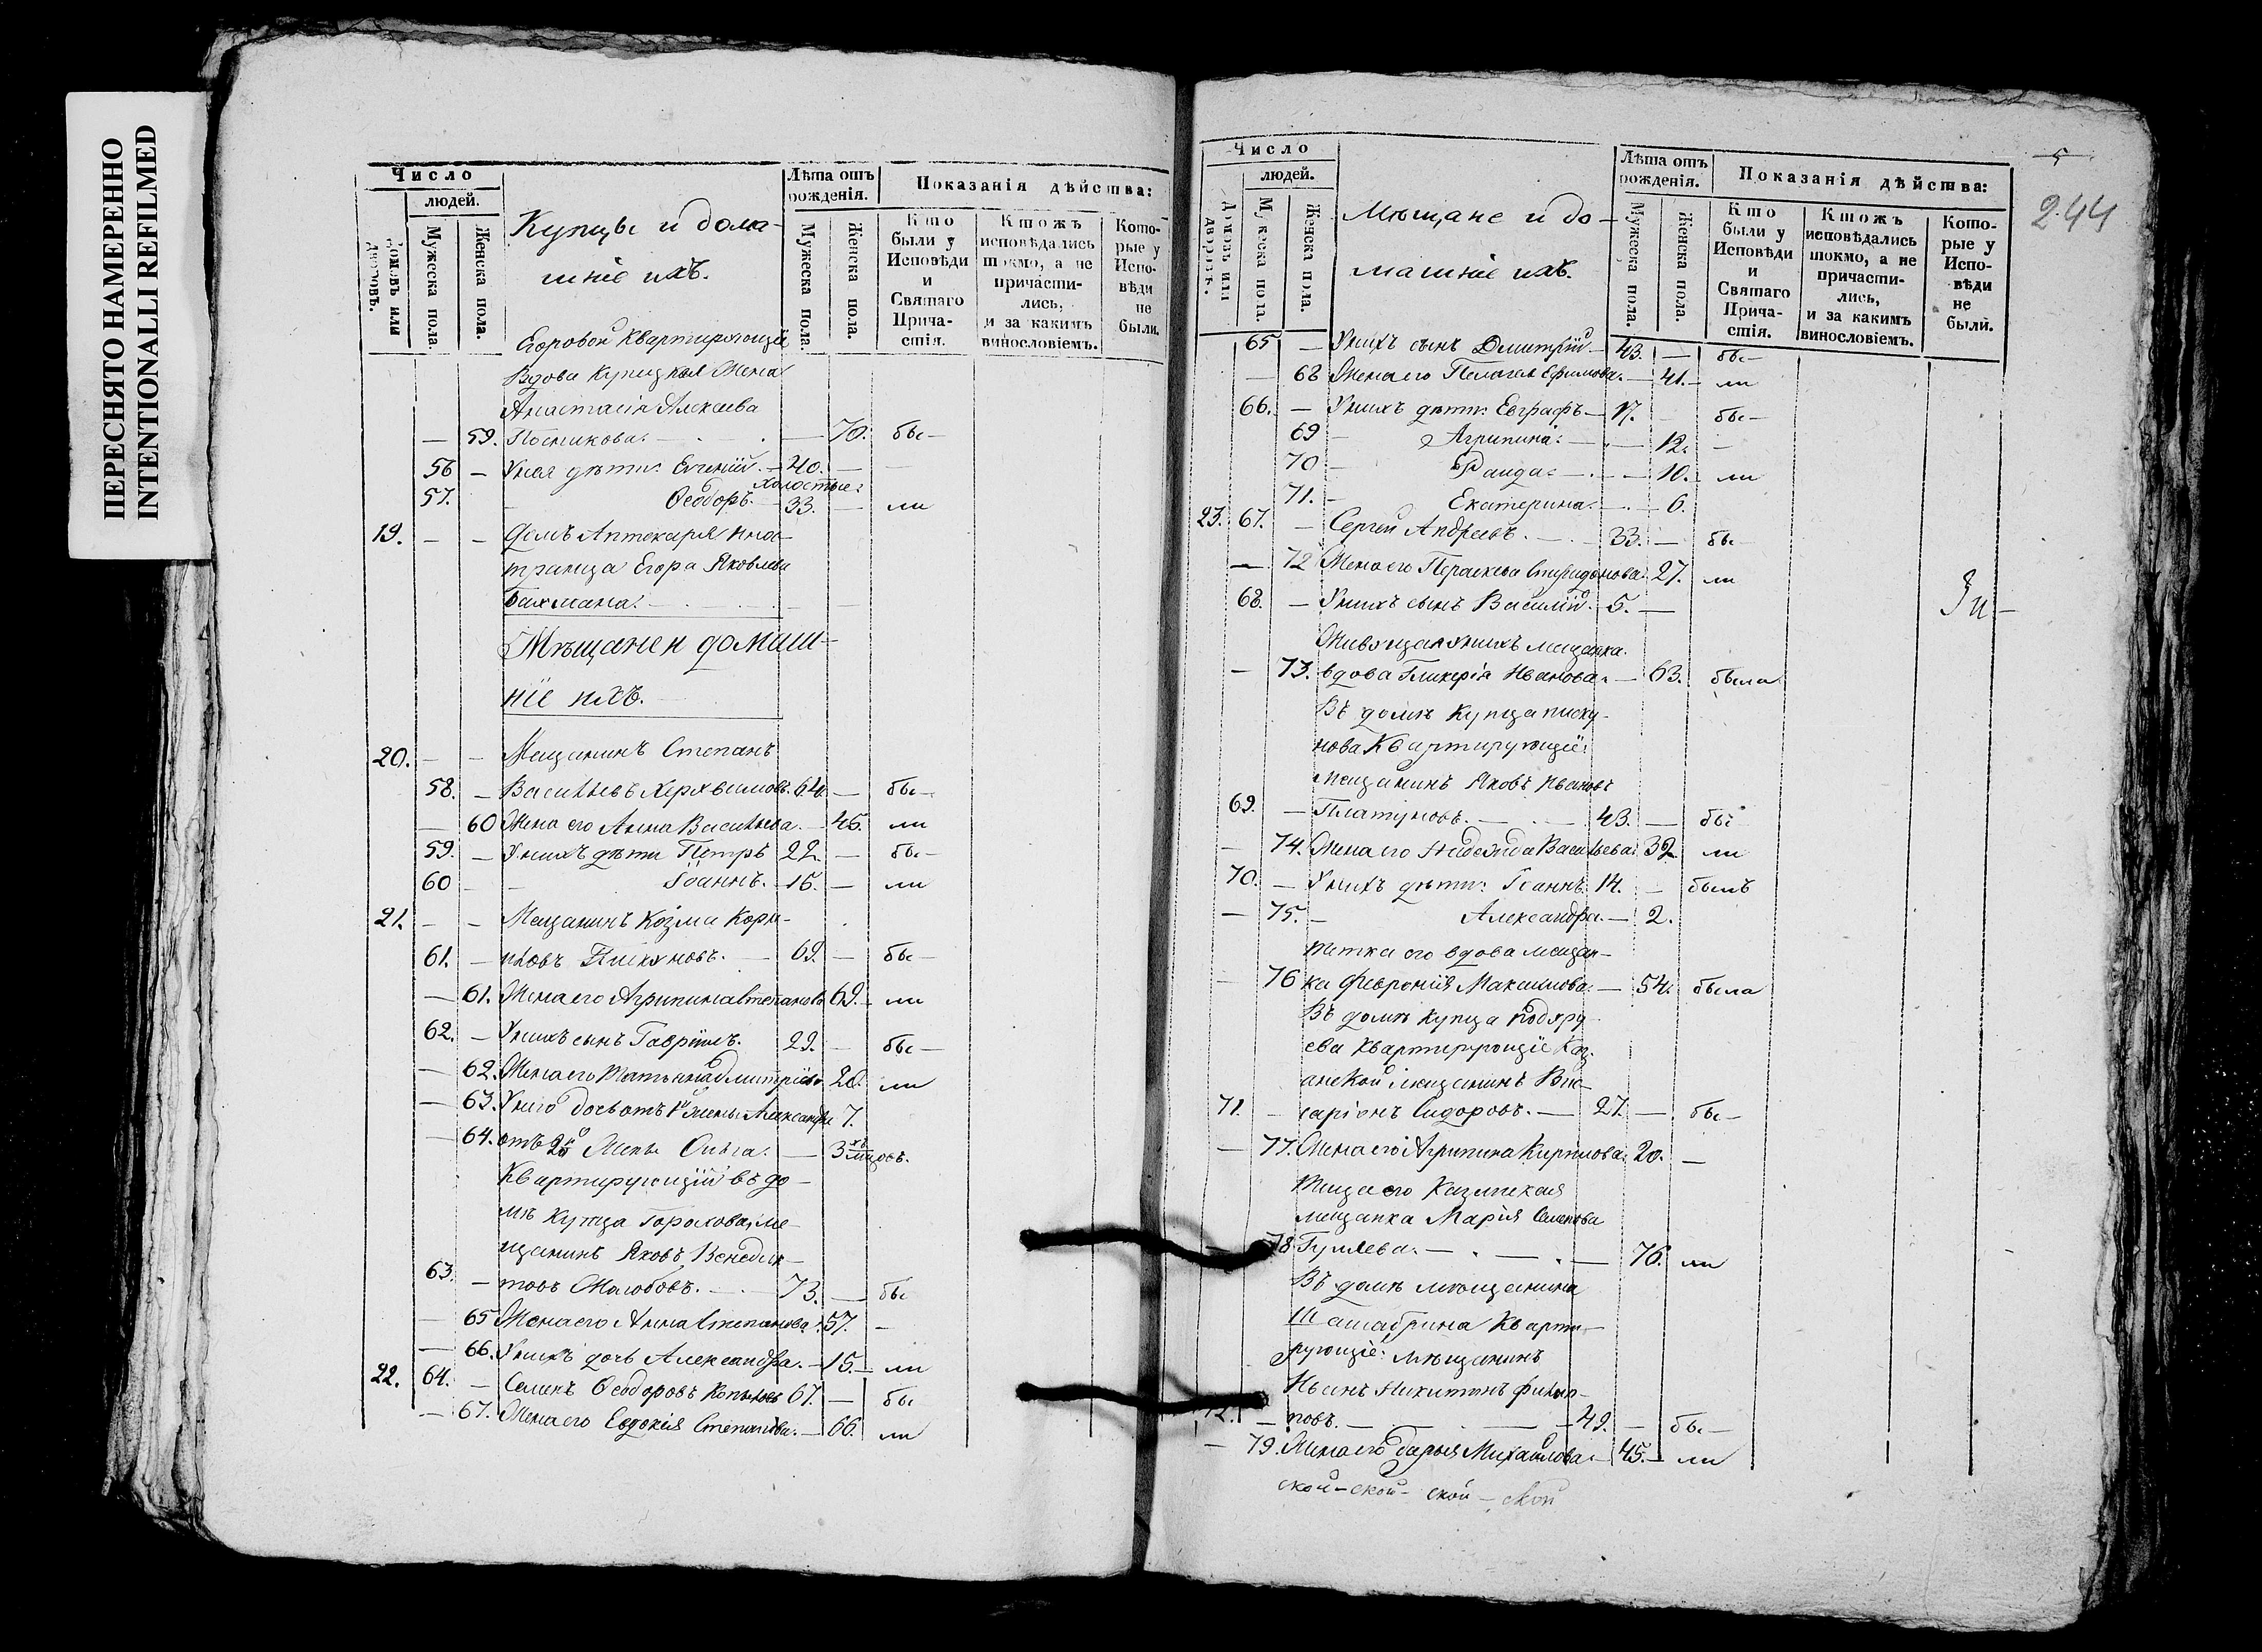 ПЕРЕСНЯТО НАМЕРЕННО
INTENTIONALLI REFILMED
Число
людей.
домовъ или дворовъ.
Мужеска пола.
Женска пола.
Купцы и дома-
шніе ихъ.
Лѣта отъ рожденія.
Мужеска пола.
Женска пола.
Показанія дѣйства:
Кто были у Исповѣди и Святаго Прича-стія.
Ктожъ исповѣдались токмо, а не причасти-лись, и за какимъ винословіемъ.
Кото-рые у Испо-вѣди не были.
Егоровой квартирующіе
Вдова купецкая жена
Анастасія Алексѣева
— 59. Посникова. — 70. бы-
56 — У нея дѣти: Евгеній. — 40. —
холостые:
57. Ѳеодоръ. — 33. — ли
19. — — Домъ Аптекаря инос-
транца Егора Яковлева
Бахмана. —
Мѣщане и домаш-
ніе ихъ.
20. — — Мещанинъ Степанъ
58. — Васильевъ Херувимовъ. 64. — бы-
— 60 Жена его Анна Васильева. — 45. ли
59. — У нихъ дѣти Петръ 22. — бы-
60 — — Іоаннъ. — 16. — ли
21. — — Мещанинъ Козма Корни-
61. — иловъ Пискуновъ. — 69. — бы-
— 61. Жена его Агрипина Степанова 69. — ли
62. — У нихъ сынъ Гавріилъ. 29. — бы-
— 62. Жена его Татьяна Дмитріева 20. ли
— 63. У него дочь отъ 1й жены Александра 7.
— 64. отъ 2й Жены Ольга. — 3хъ мцовъ.
Квартирующій въ до-
мѣ купца Горохова, ме-
щанинъ Яковъ Венедик-
63. — товъ Жолобовъ. — 73. — бы
— 65 Жена его Анна Степанова. 57. —
— 66. У нихъ дочь Александра. — 15. — ли
22. 64. — Семенъ Ѳеодоровъ Копыловъ 67. — бы
— 67. Жена его Евдокія Степанова. — 66. ли
5
244
Число
людей.
Домовъ или дворовъ.
Мужеска пола.
Женска пола.
Мѣщане и до-
машніе ихъ.
Лѣта отъ рожденія.
Мужеска пола.
Женска пола.
Показанія дѣйства:
Кто были у Исповѣди и Святаго Прича-стія.
Ктожъ исповѣдались токмо, а не причасти-лись, и за какимъ винословіемъ.
Кото-рые у Испо-вѣди не были.
65 — У нихъ сынъ Димитрій — 43. — бы-
— 68 Жена его Пелагея Ефимова. — 41. — ли
66. — У нихъ дѣти: Евграфъ — 17. — бы-
69 — Агрипина. — 12. —
70 — Раида. — 10. — ли
71. — Екатерина. — 6.
23. 67. — Сергей Андреевъ. — 33. — бы-
— 72 Жена его Параскева Спиридонова 27. ли
68. — У нихъ сынъ Василій. 5. —
Живущая у нихъ мещанка
— 73. вдова Гликерія Иванова. — 63. была
Въ домѣ купца Писку-
нова Квартирующіе:
мещанинъ Яковъ Ивановъ
69. — Платуновъ. — 43. — бы
— 74. Жена его Надежда Васильева. 32 ли
70. — У нихъ дѣти: Іоаннъ. 14. — былъ
— 75. — Александра. — 2.
тетка его вдова мещан-
— 76 ка Феvронія Максимова. — 54. была
Въ домѣ купца
ева Квартирующіе Каз-
анской мещанинъ Вис-
71. — саріонъ Сидоровъ. — 27. — бы-
— 77. Жена его Агрипина Кирилова. 20. —
Теща его Казанская
мещанка Марія Семенова
— 78 Гуляева. — 76. ли
Въ домѣ мѣщанина
Шашабрина Кварти-
рующіе: мѣщанинъ
Иванъ Никитинъ Филип-
72. — повъ. — 49. — бы-
— 79. Жена его Дарья Михаилова. — 45. — ли
ской — ской — ской — ской